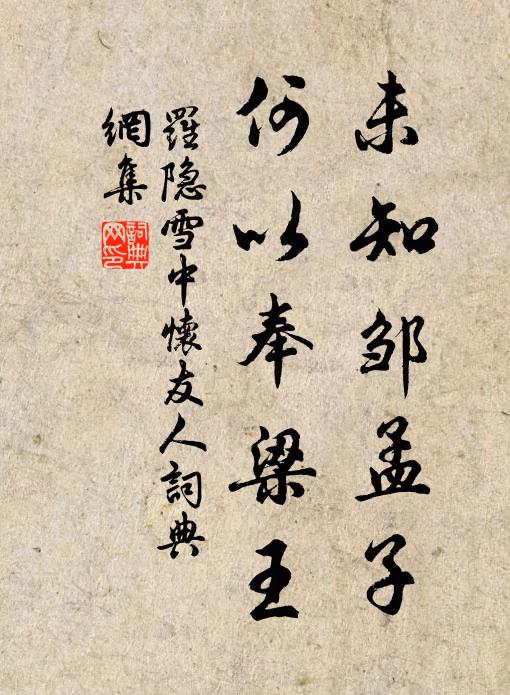 未知邹孟子
何以奉梁王
羅隐雪中懷友人詞典
網集
詞典
网印